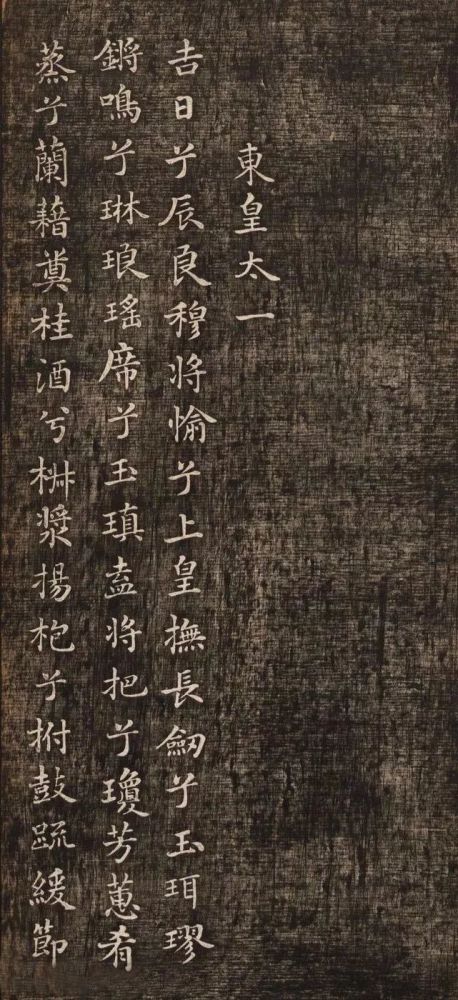 東皇太一
吉日兮辰良穆將愉兮上皇撫長劒兮玉珥璆
鏘鳴兮琳琅瑤席兮玉瑱盍將把兮瓊芳蕙肴
蒸兮蘭藉奠桂酒兮椒漿揚枹兮拊鼓疏緩節